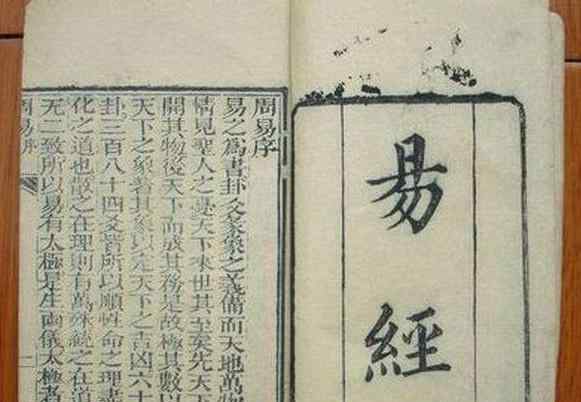 易經
周易序
易之爲書卦爻彖象之義備而天地萬物
情見聖人之憂天下來世其至矣先天下
開其物後天下而成其務是故極其數以
天下之象著其象以定天下之吉凶六十
卦三百八十四爻皆所以順性命之理盡
化之道也散之在理則有萬殊統之在道
无二致所以易有太極是生兩儀太極者
周易序